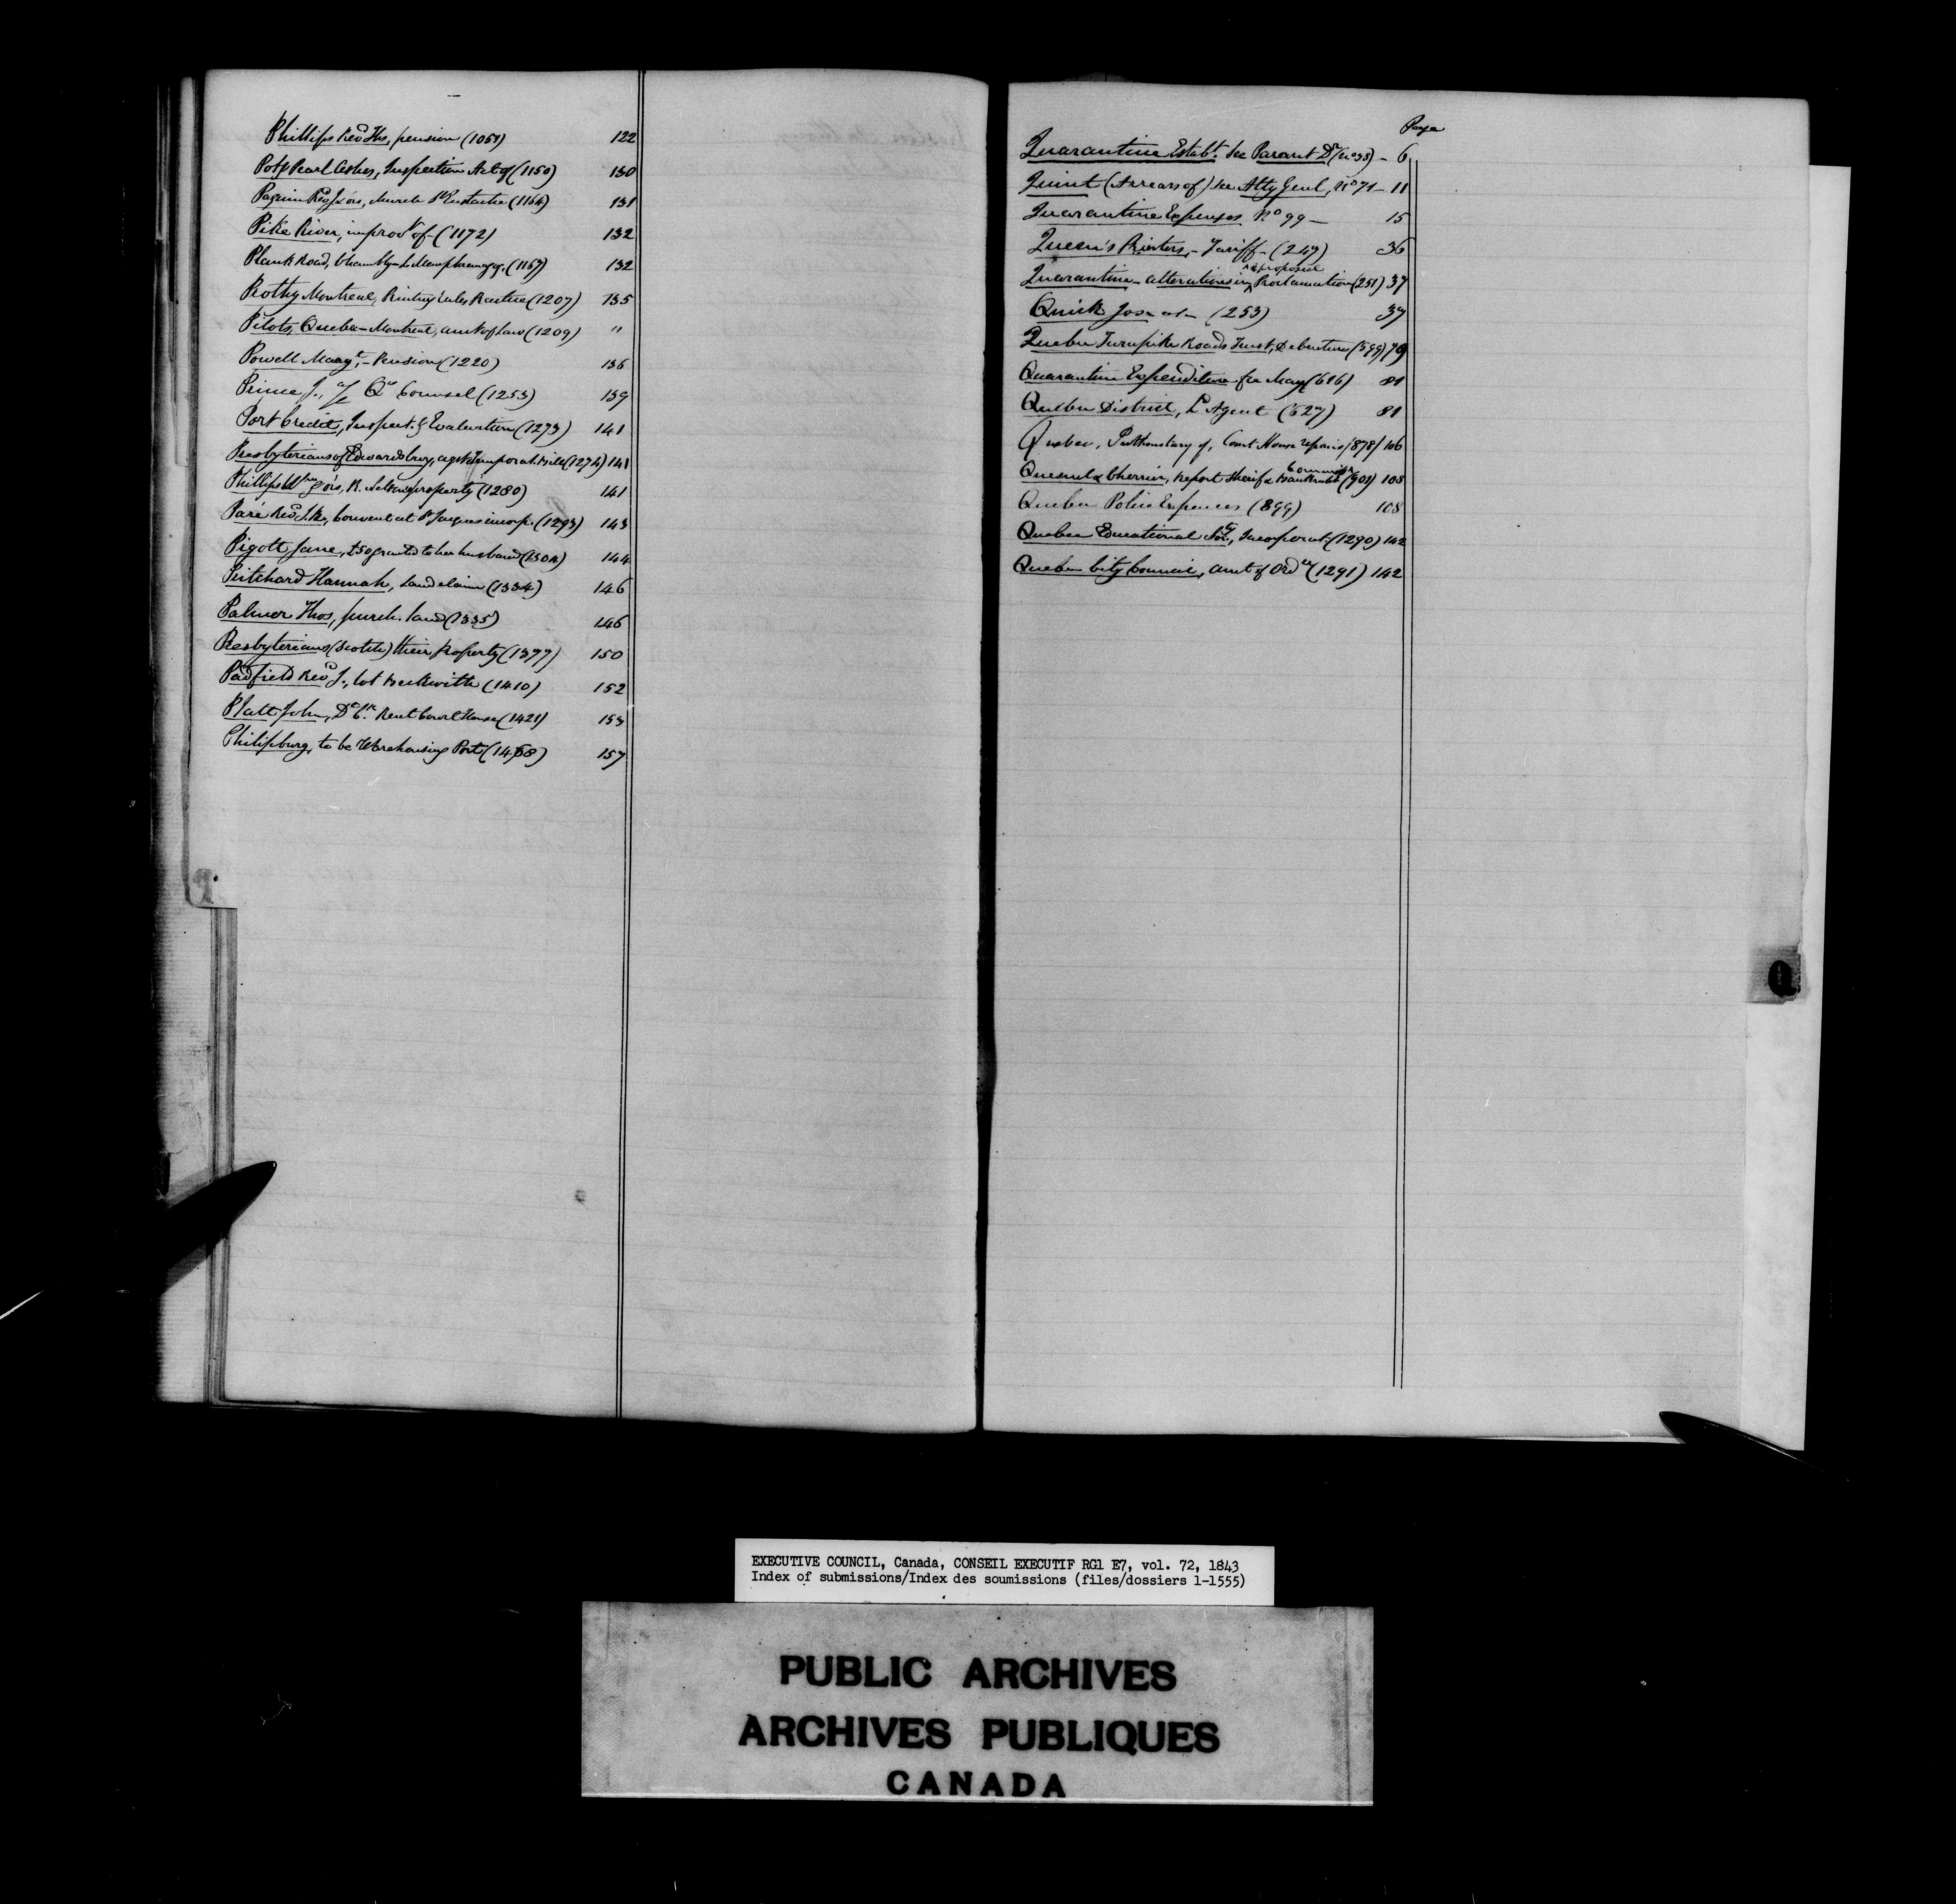 Phillips Revd Ths, pension (1051) 122
Pot & Pearl Ashes, Inspection Act of (1150) 130
Paquin Revd Jos, Church St Eustache (1164) 131
Pike River, improvt of - (1172) 132
Plank Road, Chambly - L. Memphremagog. (1167) 132
Prothy Montreal, Printing Rules Practice (1207) 135
Pilots, Quebec - Montreal, amt of Law (1209) "
Powell Margt, - Pension (1220) 136
Prince J., Qn Counsel (1253) 139
Port Credit, Inspect. & Evaluation (1273) 141
Presbyterians of Edwardsburg, agst Temporal. Bill (1274) 141
Phillips Wm, R. Nelson's property (1280) 141
Paré Revd J.R., Convent at St Jacques incorp. (1293) 143
Pigott Jane, £50 granted to her husband (1304) 144
Pritchard Hannah, Land claim (1334) 146
Palmer Thos, purch. land (1335) 146
Presbyterians (Scotch) their property (1377) 150
Padfield Revd J., lot Beckwith (1410) 152
Platt John, Rent Court House (1421) 153
Philipsburg, to be Warehousing Port (1468) 157
Page
Quarantine Establt. see Parant Dr (No 38) - 6
Quint (Arrears of) see Atty Genl, No 71 - 11
Quarantine Expenses No 99 - 15
Queen's Printers, - Tariff - (247) 36
Quarantine - alterations in proposed Proclamation (251) 37
Quick Jos - (253) 37
Quebec Turnpike Roads Trust, Debenture (599) 79
Quarantine Expenditure for May (616) 81
Quebec District, Ld Agent (627) 81
Quebec, Prothonotary of, Court House repairs (878) 106
Quesnel & Cherrier, Report Sheriff & Bankrupt Commissn (901) 108
Quebec Police Expences (899) 108
Quebec Educational Socy, Incorporat. (1290) 142
Quebec City Council, Amt of Ordce (1291) 142
Q
EXECUTIVE COUNCIL, Canada, CONSEIL EXECUTIF RG1 E7, vol. 72, 1843
Index of submissions/Index des soumissions (files/dossiers 1-1555)
PUBLIC ARCHIVES
ARCHIVES PUBLIQUES
CANADA